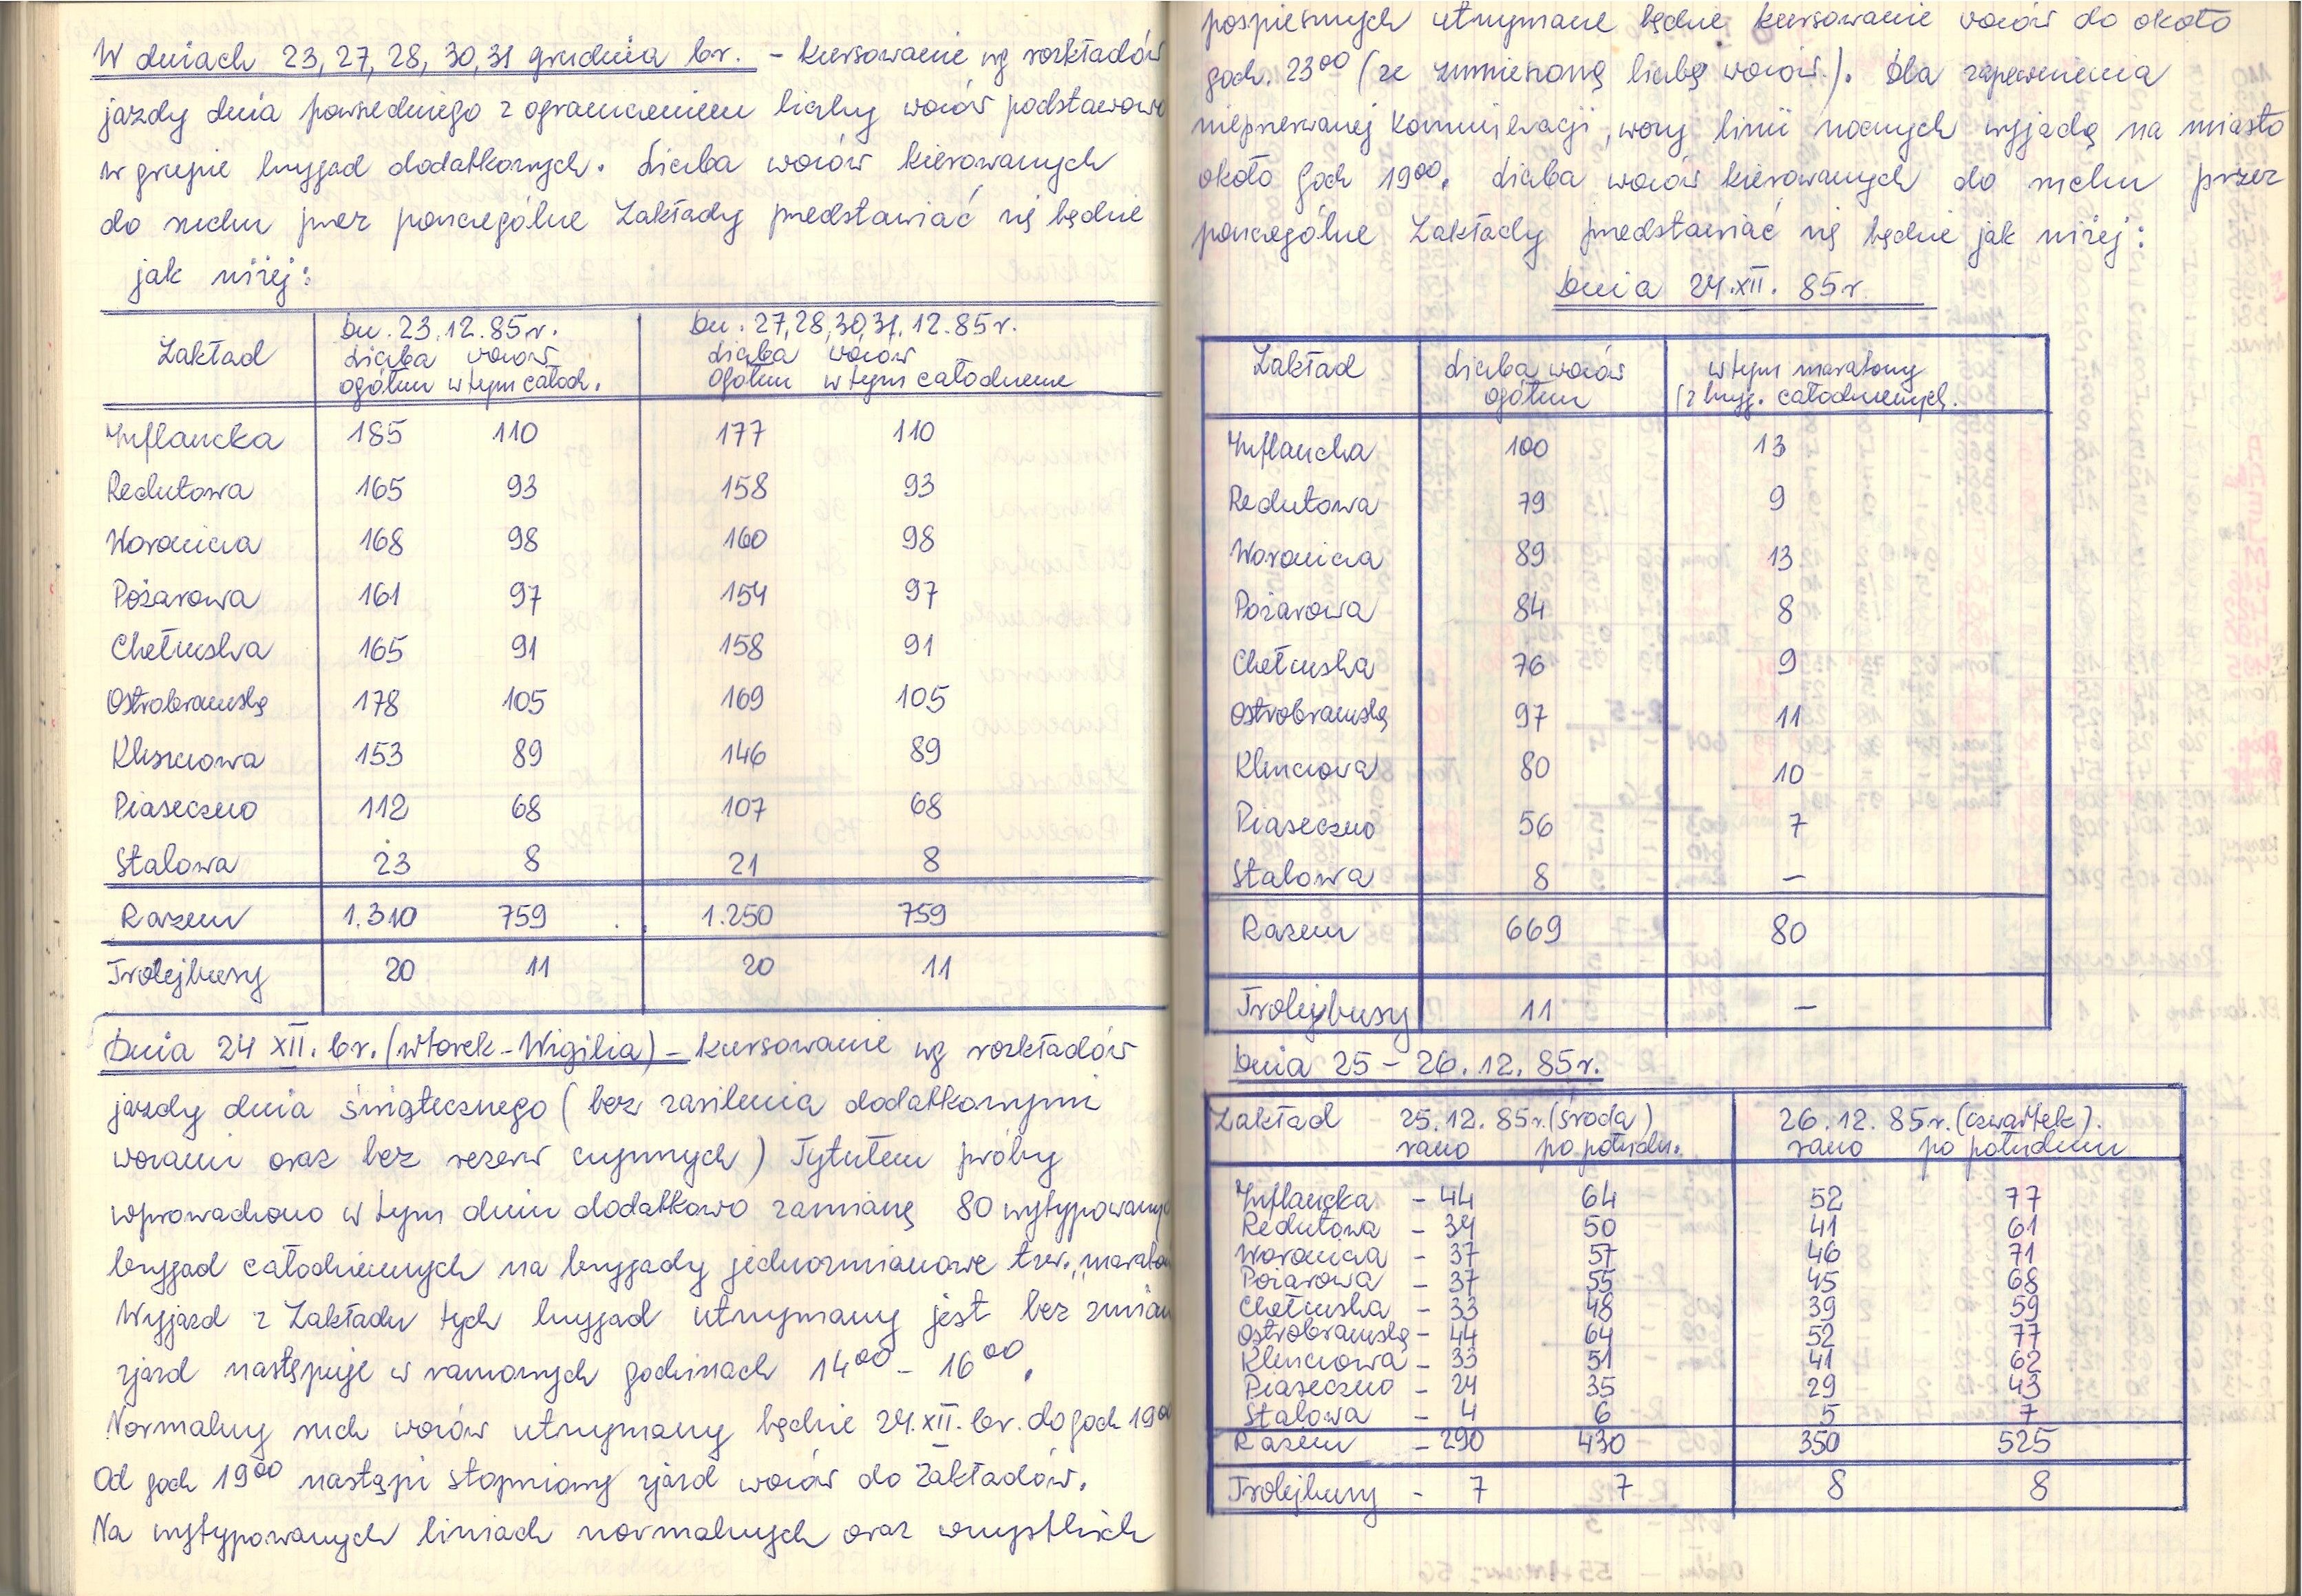 W dniach 23, 27, 28, 30, 31 grudnia br. – kursowanie wg rozkładów
jazdy dnia powszedniego z ograniczeniem liczby wozów podstawowo
w grupie brygad dodatkowych. Liczba wozów kierowanych
do ruchu przez poszczególne Zakłady przedstawiać się będzie
jak niżej:
Zakład dn. 23.12.85r. dn. 27,28,30,31.12.85r.
Liczba wozów Liczba wozów
ogółem w tym całodz. ogółem w tym całodzienne
Inflancka 185 110 177 110
Redutowa 165 93 158 93
Woronicza 168 98 160 98
Pożarowa 161 97 154 97
Chełmska 165 91 158 91
Ostrobramską 178 105 169 105
Kleszczowa 153 89 146 89
Piaseczno 112 68 107 68
Stalowa 23 8 21 8
Razem 1.310 759 1.250 759
Trolejbusy 20 11 20 11
Dnia 24 XII. br. (wtorek – Wigilia) – kursowanie wg rozkładów
jazdy dnia świątecznego (bez zasilenia dodatkowymi
wozami oraz bez rezerw czynnych) Tytułem próby
wprowadzono w tym dniu dodatkowo zamianę 80 wytypowany
brygad całodziennych na brygady jednozmianowe tzw. „marato
Wyjazd z Zakładu tych brygad utrzymany jest bez zmian
zjazd następuje w ramowych godzinach 14⁰⁰ – 16⁰⁰.
Normalny ruch wozów utrzymany będzie 24.XII. br. do godz 19⁰⁰
Od godz 19⁰⁰ nastąpi stopniowy zjazd wozów do Zakładów.
Na wytypowanych liniach normalnych oraz wszystkich
pospiesznych utrzymane będzie kursowanie wozów do około
godz. 23⁰⁰ (ze zmniejszoną liczbą wozów.). Dla zapewnienia
nieprzerwanej komunikacji, wozy linii nocnych wyjadą na miasto
około godz 19⁰⁰. Liczba wozów kierowanych do ruchu przez
poszczególne Zakłady przedstawiać się będzie jak niżej:
Dnia 24.XII. 85r
Zakład Liczba wozów w tym maratony
ogółem (z bryg. całodziennych.
Inflancka 100 13
Redutowa 79 9
Woronicza 89 13
Pożarowa 84 8
Chełmska 76 9
Ostrobramską 97 11
Kleszczowa 80 10
Piaseczno 56 7
Stalowa 8 –
Razem 669 80
Trolejbusy 11 –
Dnia 25 – 26.12.85r.
Zakład 25.12.85r. (środa) 26.12.85r. (czwartek).
rano po połudn. rano po południu
Inflancka – 44 64 52 77
Redutowa – 34 50 41 61
Woronicza – 37 57 46 71
Pożarowa – 37 55 45 68
Chełmska – 33 48 39 59
Ostrobramską – 44 64 52 77
Kleszczowa – 33 51 41 62
Piaseczno – 24 35 29 43
Stalowa – 4 6 5 7
Razem – 290 430 350 525
Trolejbusy – 7 7 8 8